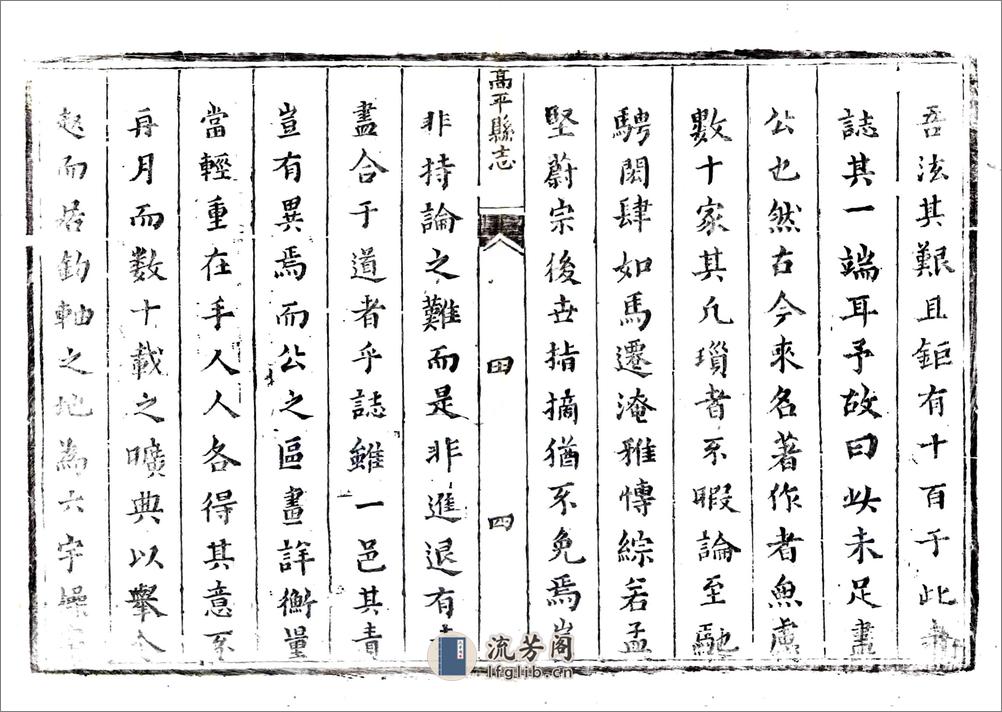 吾法其艱且鉅有十百于此者
誌其一端耳予故曰此未足盡
公也然古今來名著作者無慮
數十家其凡瑣者不暇論至馳
騁閎肆如馬遷淹雅博綜若孟
堅蔚宗後世指摘猶不免焉豈
高平縣志
四
非持論之難而是非進退有
盡合于道者乎誌雖一邑其責
豈有異焉而公之區畫詳衡量
當輕重在手人人各得其意不
再月而數十載之曠典以舉今
起而居鈞軸之地為六宇操
流芳阁
lfglib.cn